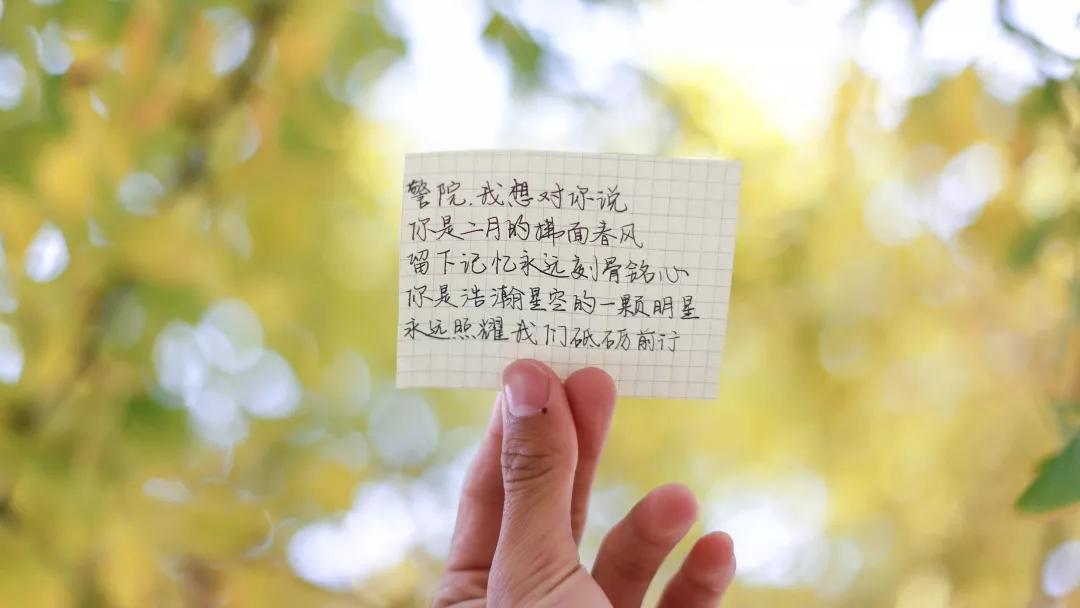 警院.我想对你说
你是二月的拂面春风
留下记忆永远刻骨铭心
你是浩瀚星空的一颗明星
永远照耀我们砥砺前行